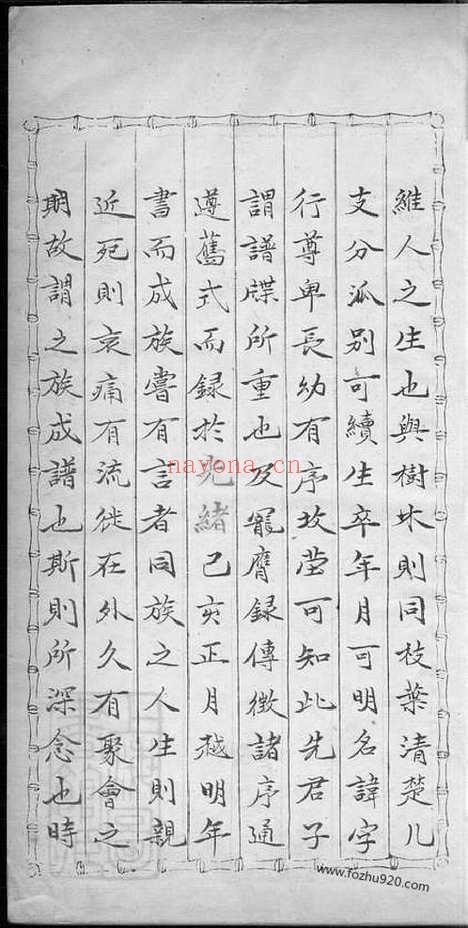 維人之生也與樹木則同枝葉清楚几
支分派別可續生卒年月可明名諱字
行尊卑長幼有序坟茔可知此先君子
謂譜牒所重也及寵膺録傳徵諸序通
遵舊式而録於光緒己亥正月越明年
書而成族嘗有言者同族之人生則親
近死則哀痛有流徙在外久有聚會之
期故謂之族成譜也斯則所深念也時
nayona.cn
www.fozhu920.com